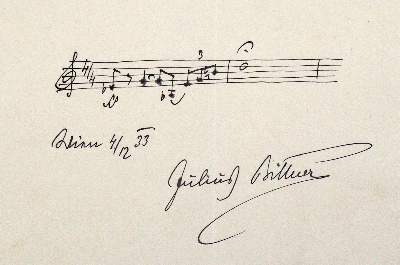 4/4
3
Wien 4/12 33
Julius Bittner